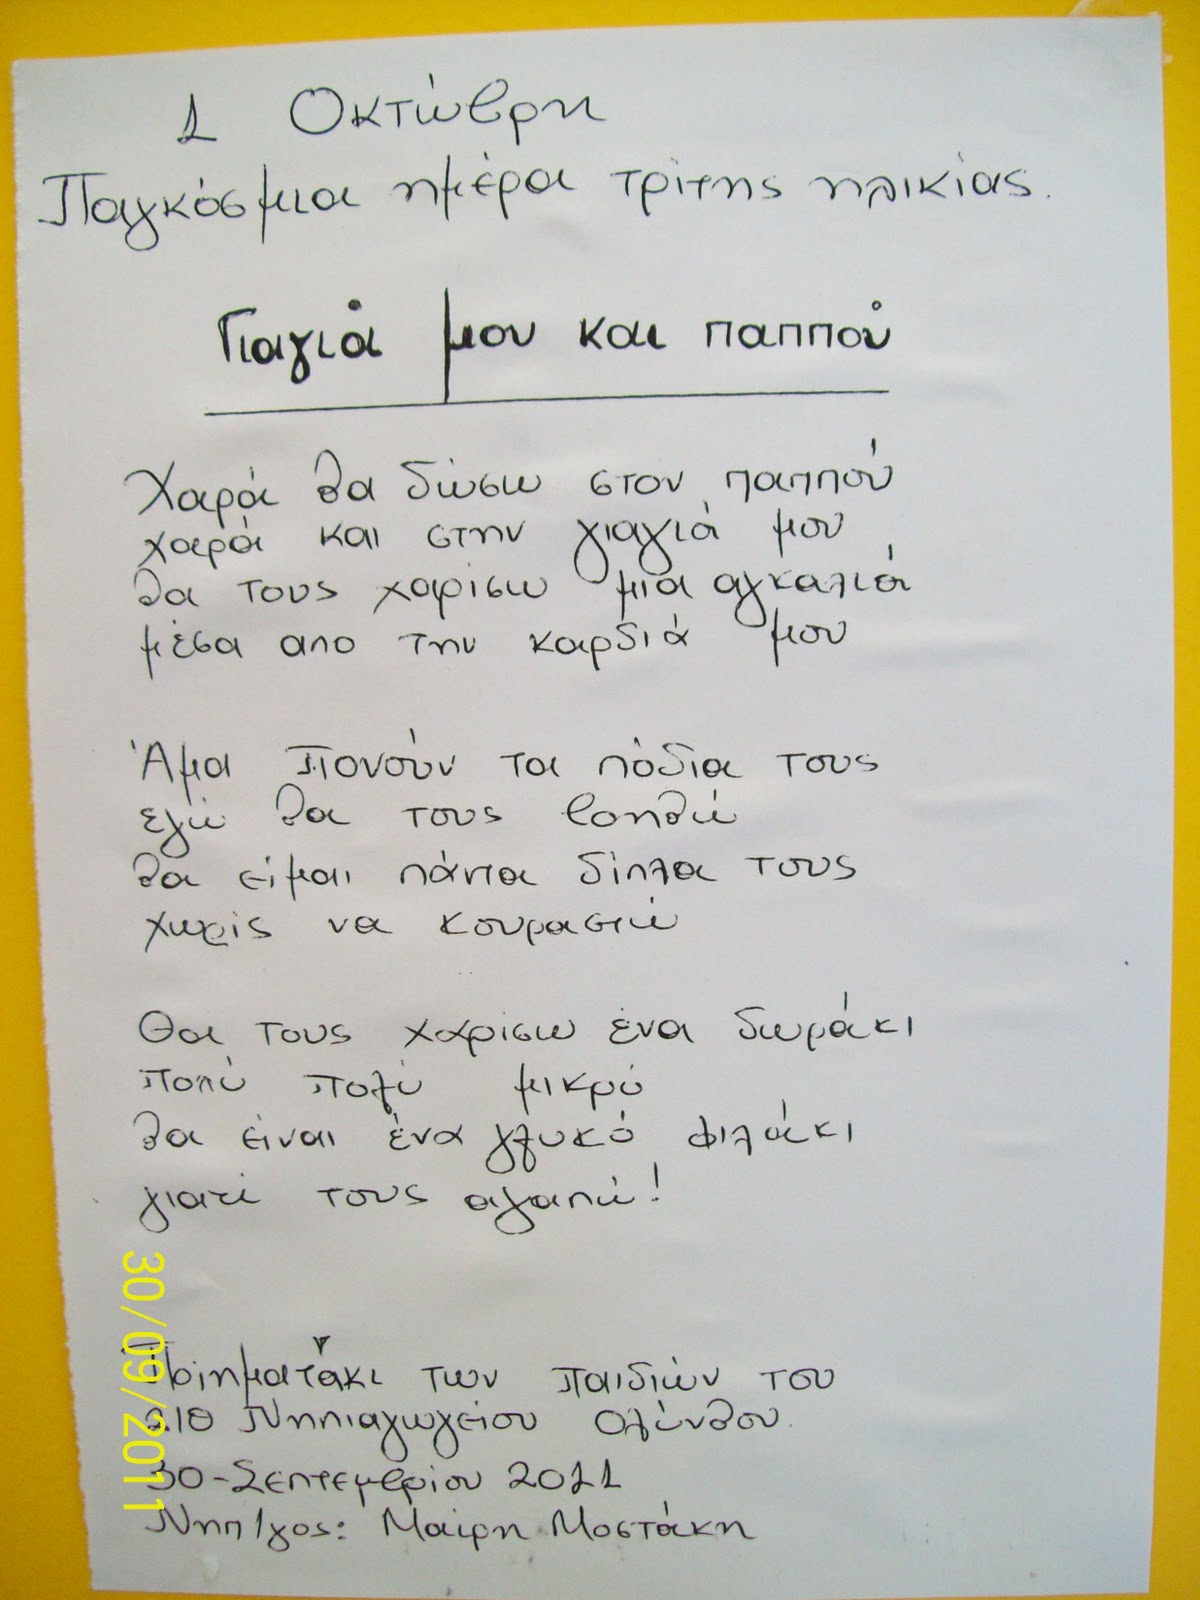 1 Οκτώβρη
Παγκόσμια ημέρα τρίτης ηλικίας.
Γιαγιά μου και παππού
Χαρά θα δώσω στον παππού
χαρά και στην γιαγιά μου
θα τους χαρίσω μια αγκαλιά
μέσα απο την καρδιά μου
Άμα πονούν τα πόδια τους
εγώ θα τους βοηθώ
θα είμαι πάντα δίπλα τους
χωρίς να κουραστώ
Θα τους χαρίσω ένα δωράκι
πολύ πολύ μικρό
θα είναι ένα γλυκό φιλάκι
γιατί τους αγαπώ!
Ποίηματάκι των παιδιών του
Νηπιαγωγείου Ολύνθου.
30-Σεπτεμβρίου 2011
Νηπ/γος: Μαίρη Μοστάκη
30/09/2011